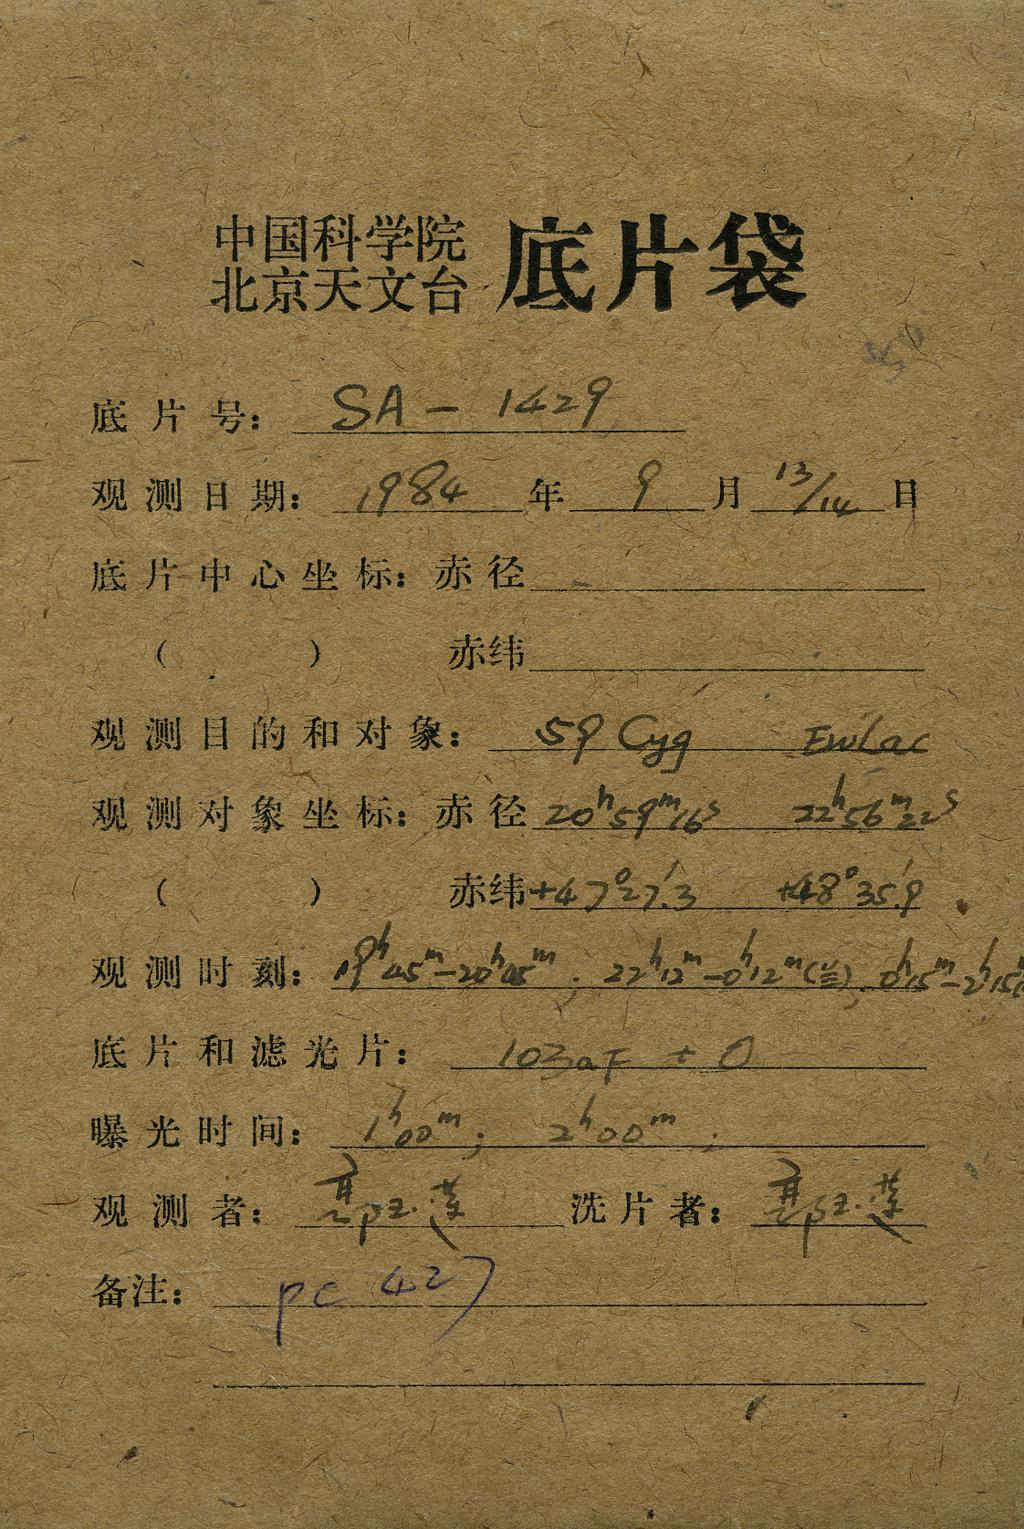 中国科学院
北京天文台 底片袋
底片号: SA-1429
观测日期: 1984 年 9 月 13/14 日
底片中心坐标: 赤径
( ) 赤纬
观测目的和对象: 59 Cyg EWLac
观测对象坐标: 赤径 20h59m16s 22h56m22s
( ) 赤纬 +47°27'.3 +48°35'.9
观测时刻: 19h45m-20h45m; 22h12m-0h12m 0h15m-2h15m
底片和滤光片: 103aF + O
曝光时间: 1h00m; 2h00m;
观测者: 郭玉莲 洗片者: 郭玉莲
备注: pc 427